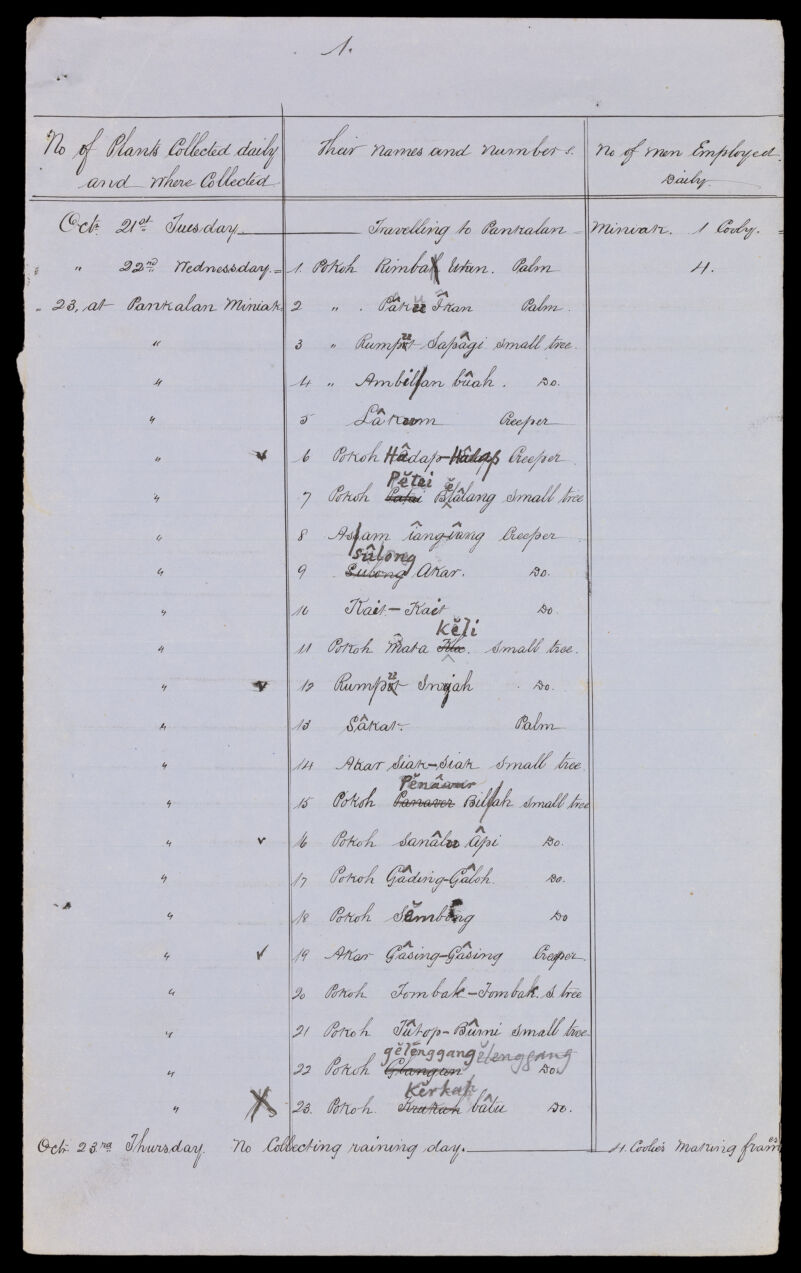 1.
No of Plants Collected daily and where Collected
Their names and numbers.
No of men Employed Daily.
Octr 21st Tuesday Travelling to Pankalan Miniak. 1 Cooly.
" 22nd Wednesday. 1. Pokoh Rimbah Utan. Palm 4.
" 23, at Pankalan Miniak 2 " Pâku Îkan Palm.
3 " Rumput Sapâgi small tree.
" 4 " Ambilan bûah. Do.
" 5 Lâkum Creeper
" v 6 Pokoh Hâdap-Hâdap Creeper
Pĕtai
" 7 Pokoh Patai Bĕlâlang small tree
" 8 Assam îang-îung Creeper
sûlong
" 9 Sulong Akar. Do.
" 10 Kait-Kait Do.
kĕli
" 11 Pokoh Mâta small tree.
" v 12 Rumput Do.
" 13 Sâkat. Palm
" 14 Akar Siak-Siak small tree
Pĕnâwar
" 15 Pokoh Panaver Billah small tree
" v 16 Pokoh Sanâlu Âpi Do.
" 17 Pokoh Gâding-Gâloh. Do.
" 18 Pokoh Sĕmbong Do
" v 19 Akar Gâsing-Gâsing Creeper.
" 20 Pokoh Tombak-Tombak. s tree
" 21 Pokoh Tûtop-Bûmi small tree
gĕlĕnggang ĕlenggang
" 22 Pokoh Glangan Do.
Kĕrkah
" X 23. Pokoh Krukah bâtu Do.
Octr 23rd Thursday. No Collecting raining day. 4 Coolies making frames